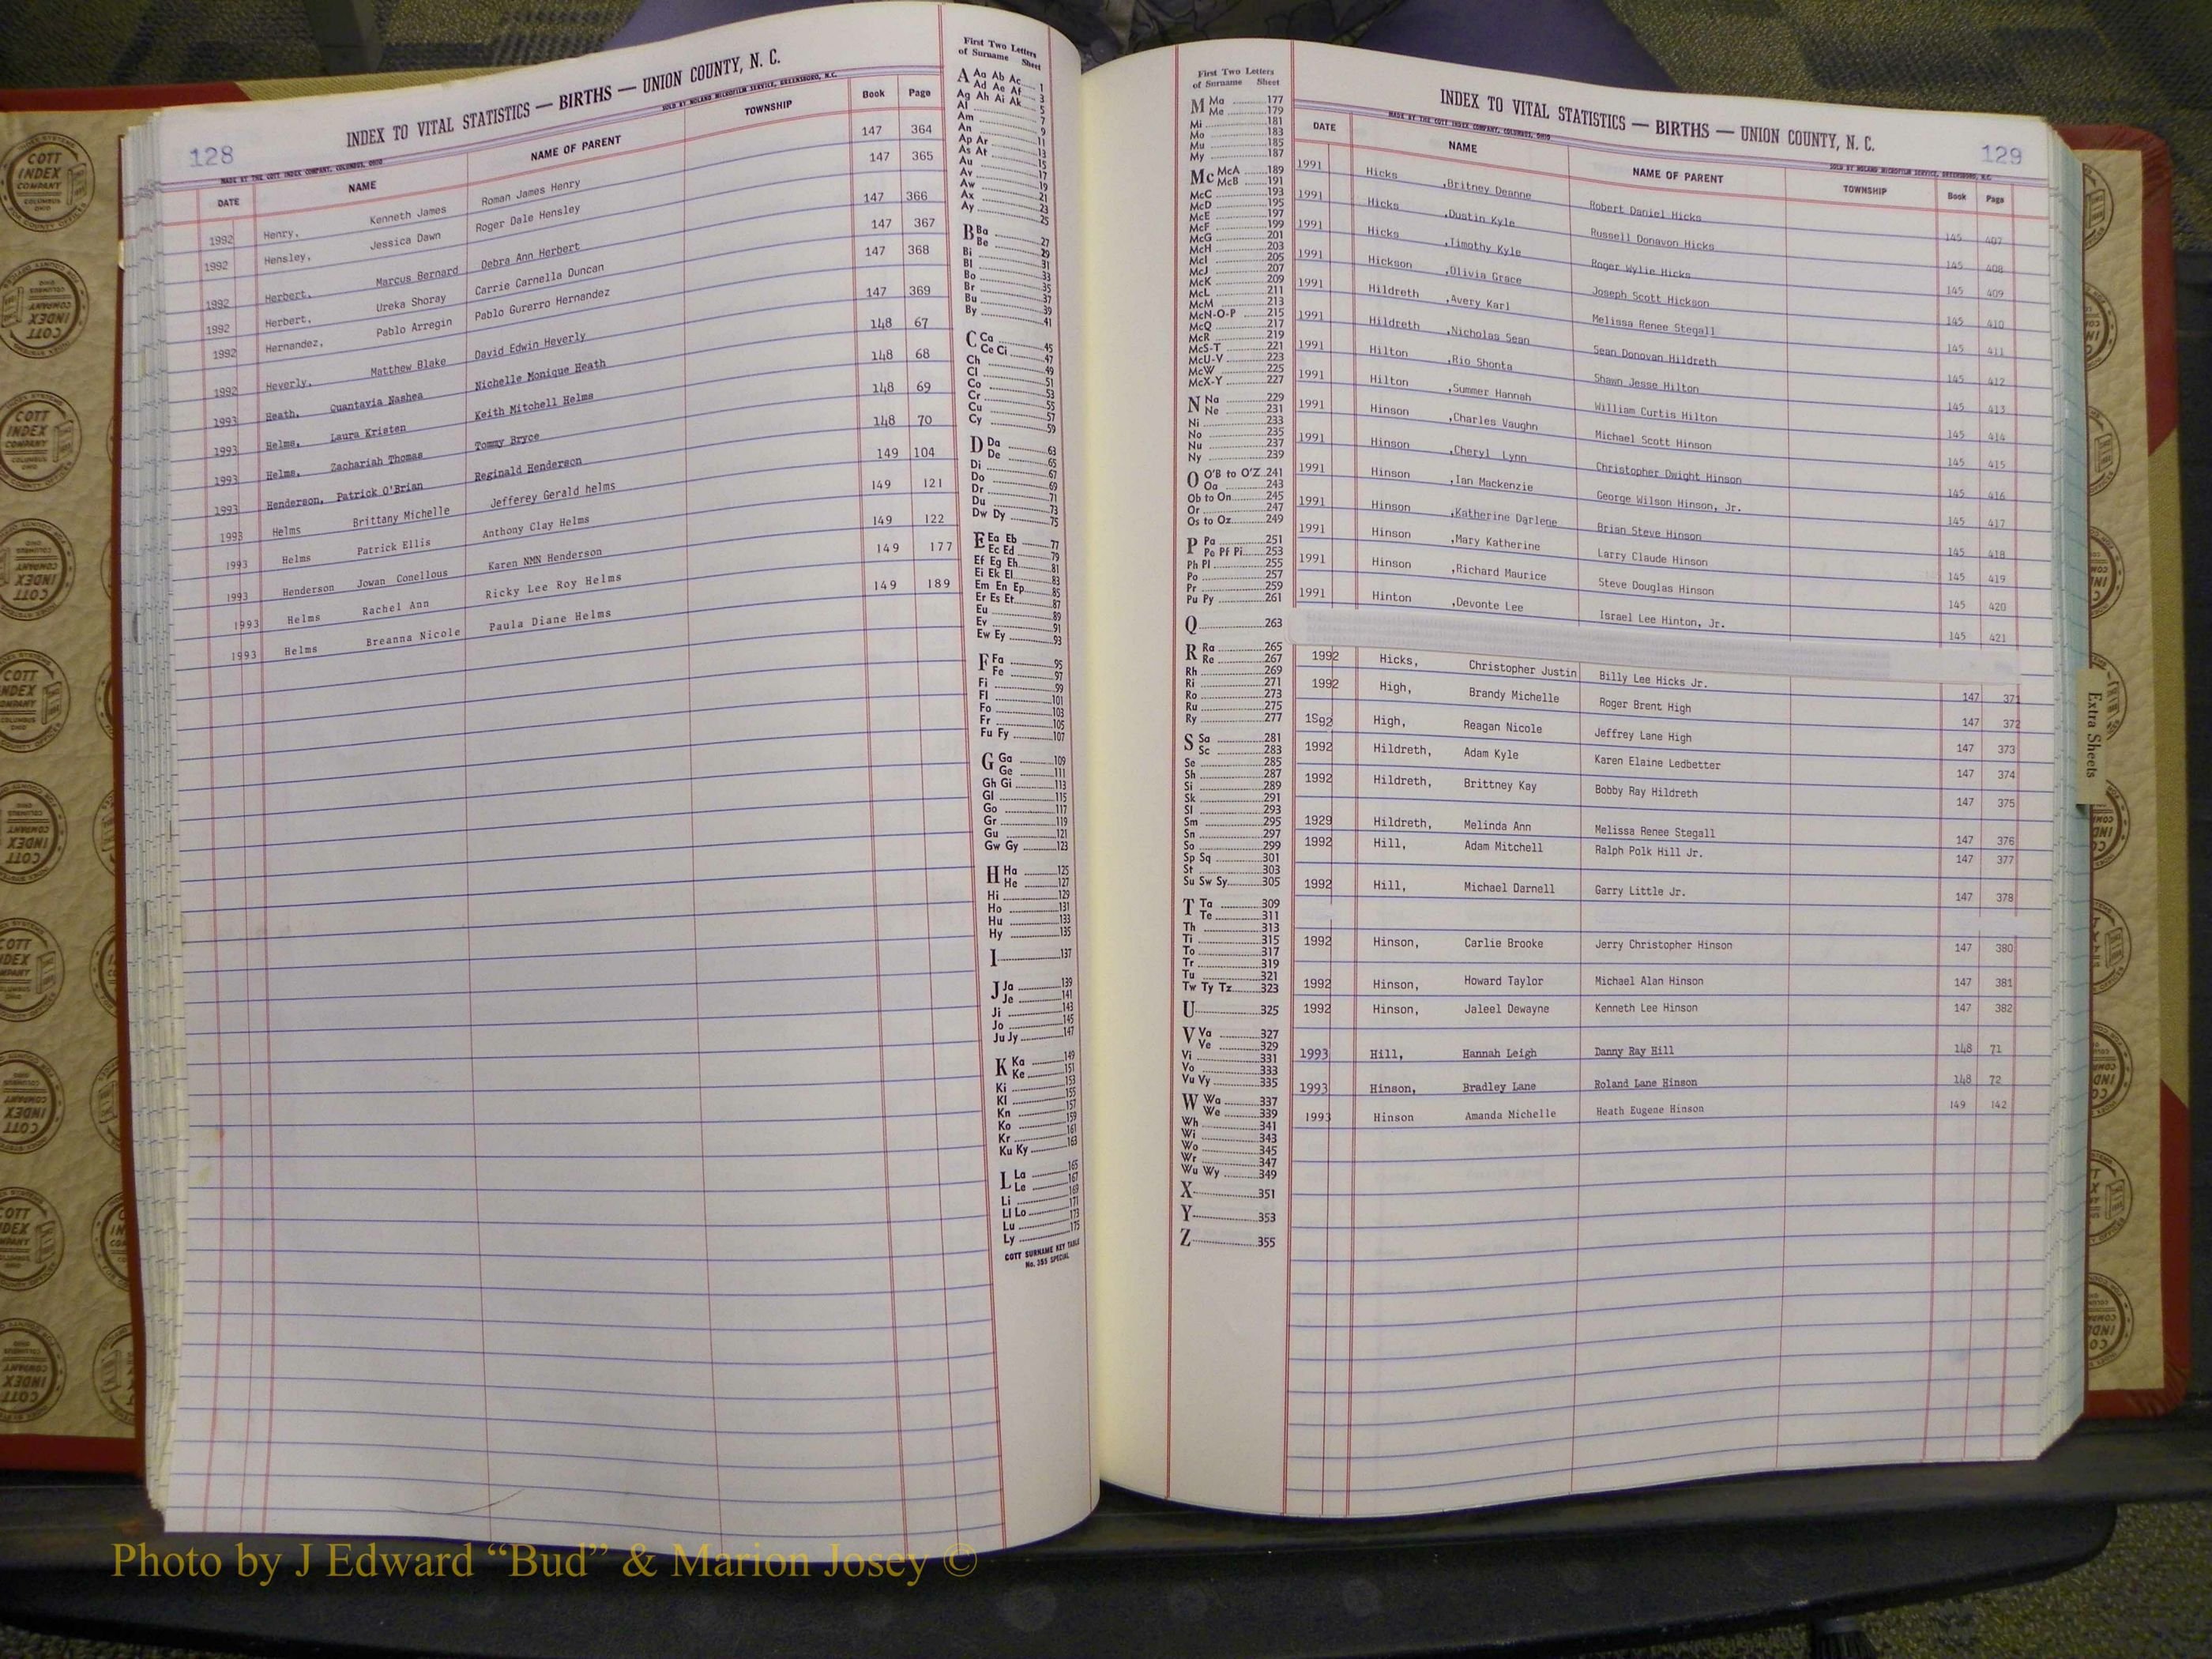 128
INDEX TO VITAL STATISTICS — BIRTHS — UNION COUNTY, N. C.
MADE BY THE COTT INDEX COMPANY, COLUMBUS, OHIO SOLD BY NOLAND MICROFILM SERVICE, GREENSBORO, N.C.
DATE NAME NAME OF PARENT TOWNSHIP Book Page
1992 Henry, Kenneth James Roman James Henry 147 364
1992 Hensley, Jessica Dawn Roger Dale Hensley 147 365
1992 Herbert, Marcus Bernard Debra Ann Herbert 147 366
1992 Herbert, Ureka Shoray Carrie Carnella Duncan 147 367
1992 Hernandez, Pablo Arregin Pablo Gurerro Hernandez 147 368
1992 Heverly, Matthew Blake David Edwin Heverly 147 369
1993 Heath, Quantavia Nashea Nichelle Monique Heath 148 67
1993 Helms, Laura Kristen Keith Mitchell Helms 148 68
1993 Helms, Zachariah Thomas Tommy Bryce 148 69
1993 Henderson, Patrick O'Brian Reginald Henderson 148 70
1993 Helms Brittany Michelle Jefferey Gerald helms 149 104
1993 Helms Patrick Ellis Anthony Clay Helms 149 121
1993 Henderson Jowan Conellous Karen NMN Henderson 149 122
1993 Helms Rachel Ann Ricky Lee Roy Helms 149 177
1993 Helms Breanna Nicole Paula Diane Helms 149 189
First Two Letters
of Surname Sheet
A Aa Ab Ac 1
Ad Ae Af 3
Ag Ah Ai Ak 5
Al 7
Am 9
An 11
Ap Ar 13
As At 15
Au 17
Av 19
Aw 21
Ax 23
Ay 25
B Ba 27
Be 29
Bi 31
Bl 33
Bo 35
Br 37
Bu 39
By 41
C Ca 45
Ce Ci 47
Ch 49
Cl 51
Co 53
Cr 55
Cu 57
Cy 59
D Da 63
De 65
Di 67
Do 69
Dr 71
Du 73
Dw Dy 75
E Ea Eb 77
Ec Ed 79
Ef Eg Eh 81
Ei Ek El 83
Em En Ep 85
Er Es Et 87
Eu 89
Ev 91
Ew Ey 93
F Fa 95
Fe 97
Fi 99
Fl 101
Fo 103
Fr 105
Fu Fy 107
G Ga 109
Ge 111
Gh Gi 113
Gl 115
Go 117
Gr 119
Gu 121
Gw Gy 123
H Ha 125
He 127
Hi 129
Ho 131
Hu 133
Hy 135
I 137
J Ja 139
Je 141
Ji 143
Jo 145
Ju Jy 147
K Ka 149
Ke 151
Ki 153
Kl 155
Kn 157
Ko 159
Kr 161
Ku Ky 163
L La 165
Le 167
Li 169
Ll Lo 171
Lu 173
Ly 175
COTT SURNAME KEY TABLE
No. 355 SPECIAL
First Two Letters
of Surname Sheet
M Ma 177
Me 179
Mi 181
Mo 183
Mu 185
My 187
Mc McA 189
McB 191
McC 193
McD 195
McE 197
McF 199
McG 201
McH 203
McI 205
McJ 207
McK 209
McL 211
McM 213
McN-O-P 215
McQ 217
McR 219
McS-T 221
McU-V 223
McW 225
McX-Y 227
N Na 229
Ne 231
Ni 233
No 235
Nu 237
Ny 239
O O'B to O'Z 241
Oa 243
Ob to On 245
Or 247
Os to Oz 249
P Pa 251
Pe Pf Pi 253
Ph Pl 255
Po 257
Pr 259
Pu Py 261
Q 263
R Ra 265
Re 267
Rh 269
Ri 271
Ro 273
Ru 275
Ry 277
S Sa 281
Sc 283
Se 285
Sh 287
Si 289
Sk 291
Sl 293
Sm 295
Sn 297
So 299
Sp Sq 301
St 303
Su Sw Sy 305
T Ta 309
Te 311
Th 313
Ti 315
To 317
Tr 319
Tu 321
Tw Ty Tz 323
U 325
V Va 327
Ve 329
Vi 331
Vo 333
Vu Vy 335
W Wa 337
We 339
Wh 341
Wi 343
Wo 345
Wr 347
Wu Wy 349
X 351
Y 353
Z 355
INDEX TO VITAL STATISTICS — BIRTHS — UNION COUNTY, N. C.
129
MADE BY THE COTT INDEX COMPANY, COLUMBUS, OHIO SOLD BY NOLAND MICROFILM SERVICE, GREENSBORO, N.C.
DATE NAME NAME OF PARENT TOWNSHIP Book Page
1991 Hicks ,Britney Deanne Robert Daniel Hicks 145 407
1991 Hicks ,Dustin Kyle Russell Donavon Hicks 145 408
1991 Hicks ,Timothy Kyle Roger Wylie Hicks 145 409
1991 Hickson ,Olivia Grace Joseph Scott Hickson 145 410
1991 Hildreth ,Avery Karl Melissa Renee Stegall 145 411
1991 Hildreth ,Nicholas Sean Sean Donovan Hildreth 145 412
1991 Hilton ,Rio Shonta Shawn Jesse Hilton 145 413
1991 Hilton ,Summer Hannah William Curtis Hilton 145 414
1991 Hinson ,Charles Vaughn Michael Scott Hinson 145 415
1991 Hinson ,Cheryl Lynn Christopher Dwight Hinson 145 416
1991 Hinson ,Ian Mackenzie George Wilson Hinson, Jr. 145 417
1991 Hinson ,Katherine Darlene Brian Steve Hinson 145 418
1991 Hinson ,Mary Katherine Larry Claude Hinson 145 419
1991 Hinson ,Richard Maurice Steve Douglas Hinson 145 420
1991 Hinton ,Devonte Lee Israel Lee Hinton, Jr. 145 421
1992 Hicks, Christopher Justin Billy Lee Hicks Jr. 147 371
1992 High, Brandy Michelle Roger Brent High 147 372
1992 High, Reagan Nicole Jeffrey Lane High 147 373
1992 Hildreth, Adam Kyle Karen Elaine Ledbetter 147 374
1992 Hildreth, Brittney Kay Bobby Ray Hildreth 147 375
1929 Hildreth, Melinda Ann Melissa Renee Stegall 147 376
1992 Hill, Adam Mitchell Ralph Polk Hill Jr. 147 377
1992 Hill, Michael Darnell Garry Little Jr. 147 378
1992 Hinson, Carlie Brooke Jerry Christopher Hinson 147 380
1992 Hinson, Howard Taylor Michael Alan Hinson 147 381
1992 Hinson, Jaleel Dewayne Kenneth Lee Hinson 147 382
1993 Hill, Hannah Leigh Danny Ray Hill 148 71
1993 Hinson, Bradley Lane Roland Lane Hinson 148 72
1993 Hinson Amanda Michelle Heath Eugene Hinson 149 142
Extra Sheets
COTT INDEX COMPANY
Photo by J Edward “Bud” & Marion Josey ©